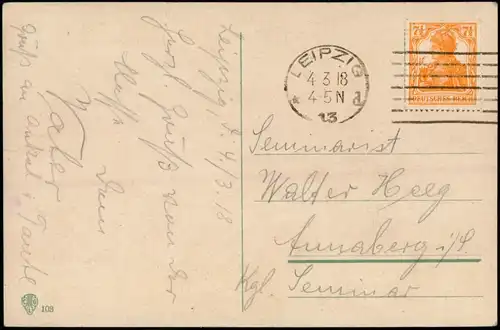 Leipzig, d. 4/3.18
Herzl. Grüße von der
Dein
Vater
Gruß an Onkel u. Tante
108
LEIPZIG
4.3.18
4-5N
13
7½ 7½
DEUTSCHES REICH
Seminarist
Walter Heeg
Annaberg i/S.
Kgl. Seminar